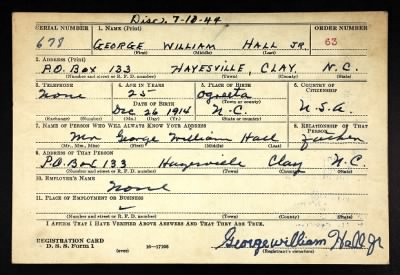 Disc. 7-18-44
SERIAL NUMBER 1. NAME (Print) ORDER NUMBER
678 GEORGE WILLIAM HALL JR. 63
(First) (Middle) (Last)
2. ADDRESS (Print)
P.O. Box 133 HAYESVILLE, CLAY N.C.
(Number and street or R. F. D. number) (Town) (County) (State)
3. TELEPHONE 4. AGE IN YEARS 5. PLACE OF BIRTH 6. COUNTRY OF CITIZENSHIP
None 25 Ogreeta
DATE OF BIRTH (Town or county)
Dec 26 1914 N.C. U.S.A.
(Exchange) (Number) (Mo.) (Day) (Yr.) (State or country)
7. NAME OF PERSON WHO WILL ALWAYS KNOW YOUR ADDRESS 8. RELATIONSHIP OF THAT PERSON
George William Hall
(Mr., Mrs., Miss) (First) (Middle) (Last)
9. ADDRESS OF THAT PERSON
P.O. Box 133 Hayesville Clay N.C.
(Number and street or R. F. D. number) (Town) (County) (State)
10. EMPLOYER'S NAME
None
11. PLACE OF EMPLOYMENT OR BUSINESS
(Number and street or R. F. D. number) (Town) (County) (State)
I AFFIRM THAT I HAVE VERIFIED ABOVE ANSWERS AND THAT THEY ARE TRUE.
REGISTRATION CARD
D. S. S. Form 1 (over) 16-17105
George William Hall Jr
(Registrant's signature)